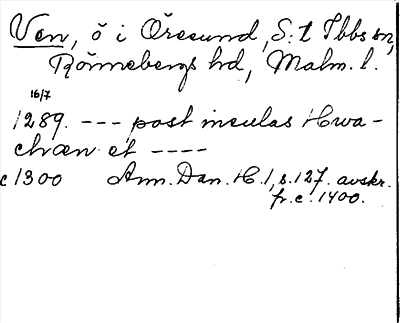 Ven, ö i Öresund, S:t Ibbs sn,
Rönnebergs hd, Malm. l.
16/7
1289. --- post insulas Hwa-
chæn et ----
c 1300 Ann. Dan. H. 1, s. 127. avskr.
fr. c. 1400.